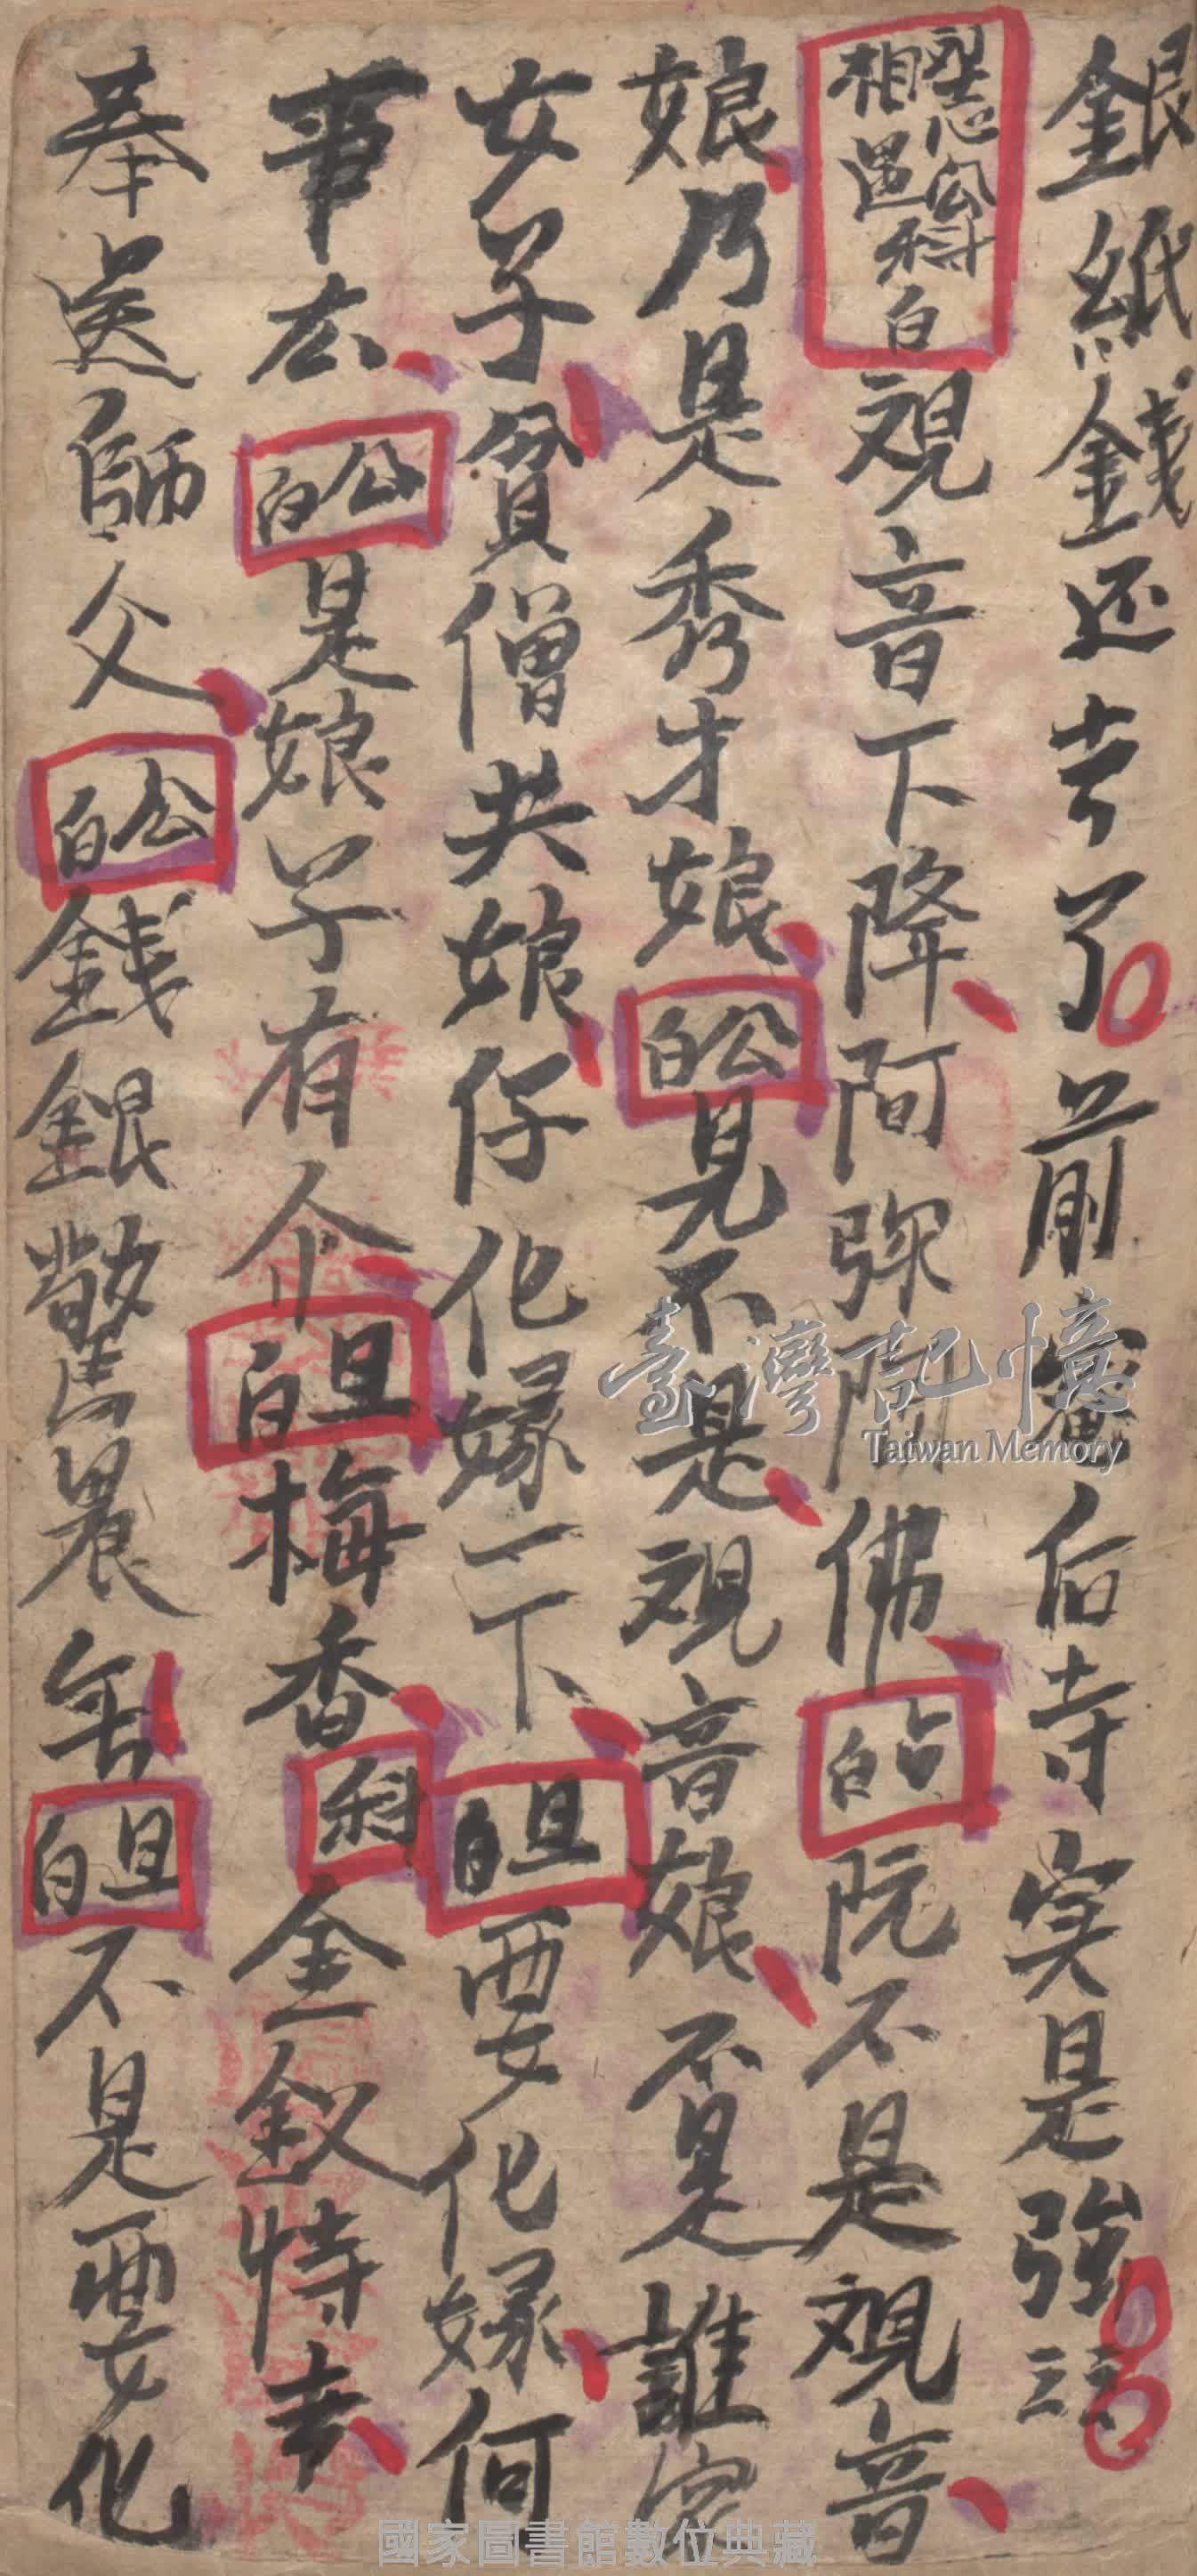 銀紙錢还去了前並后寺实是強
相遇科白
观音下降阿弥陀佛占白阮不是观音
娘乃是秀才娘公白見不是观音娘不是誰家
女子貧僧共娘仔化緣一下旦白要化緣何
事去公白是娘子有介旦白梅香科金釵特去
奉送師父公白錢銀驚畏年旦白不是要化
臺灣記憶
Taiwan Memory
國家圖書館數位典藏